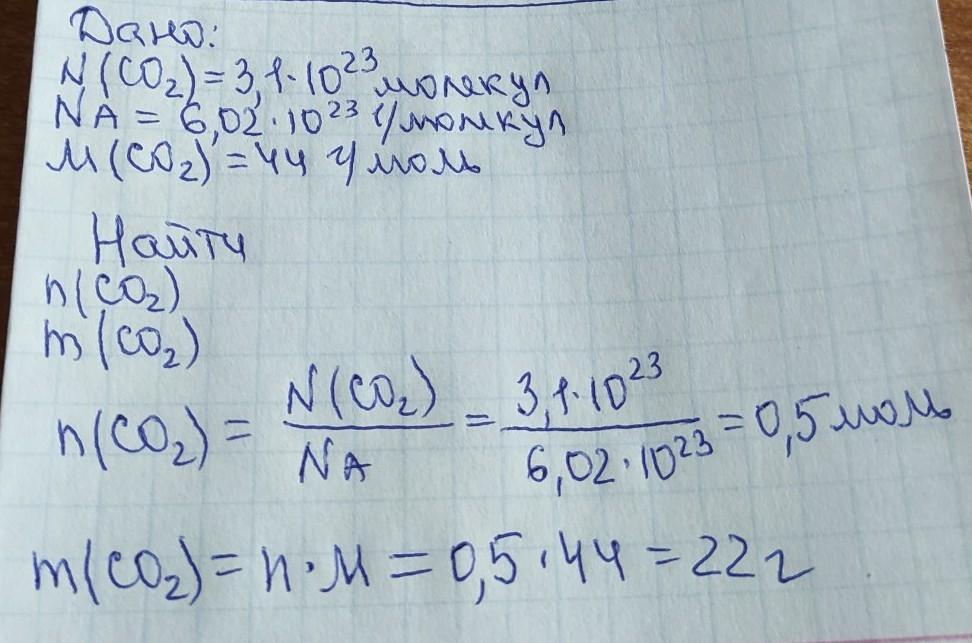 Дано:
N(CO₂) = 3,1·10²³ молекул
NA = 6,02·10²³ 1/молекул
M(CO₂) = 44 г/моль
Найти
n(CO₂)
m(CO₂)
n(CO₂) = N(CO₂)/NA = 3,1·10²³/6,02·10²³ = 0,5 моль
m(CO₂) = n·M = 0,5·44 = 22 г